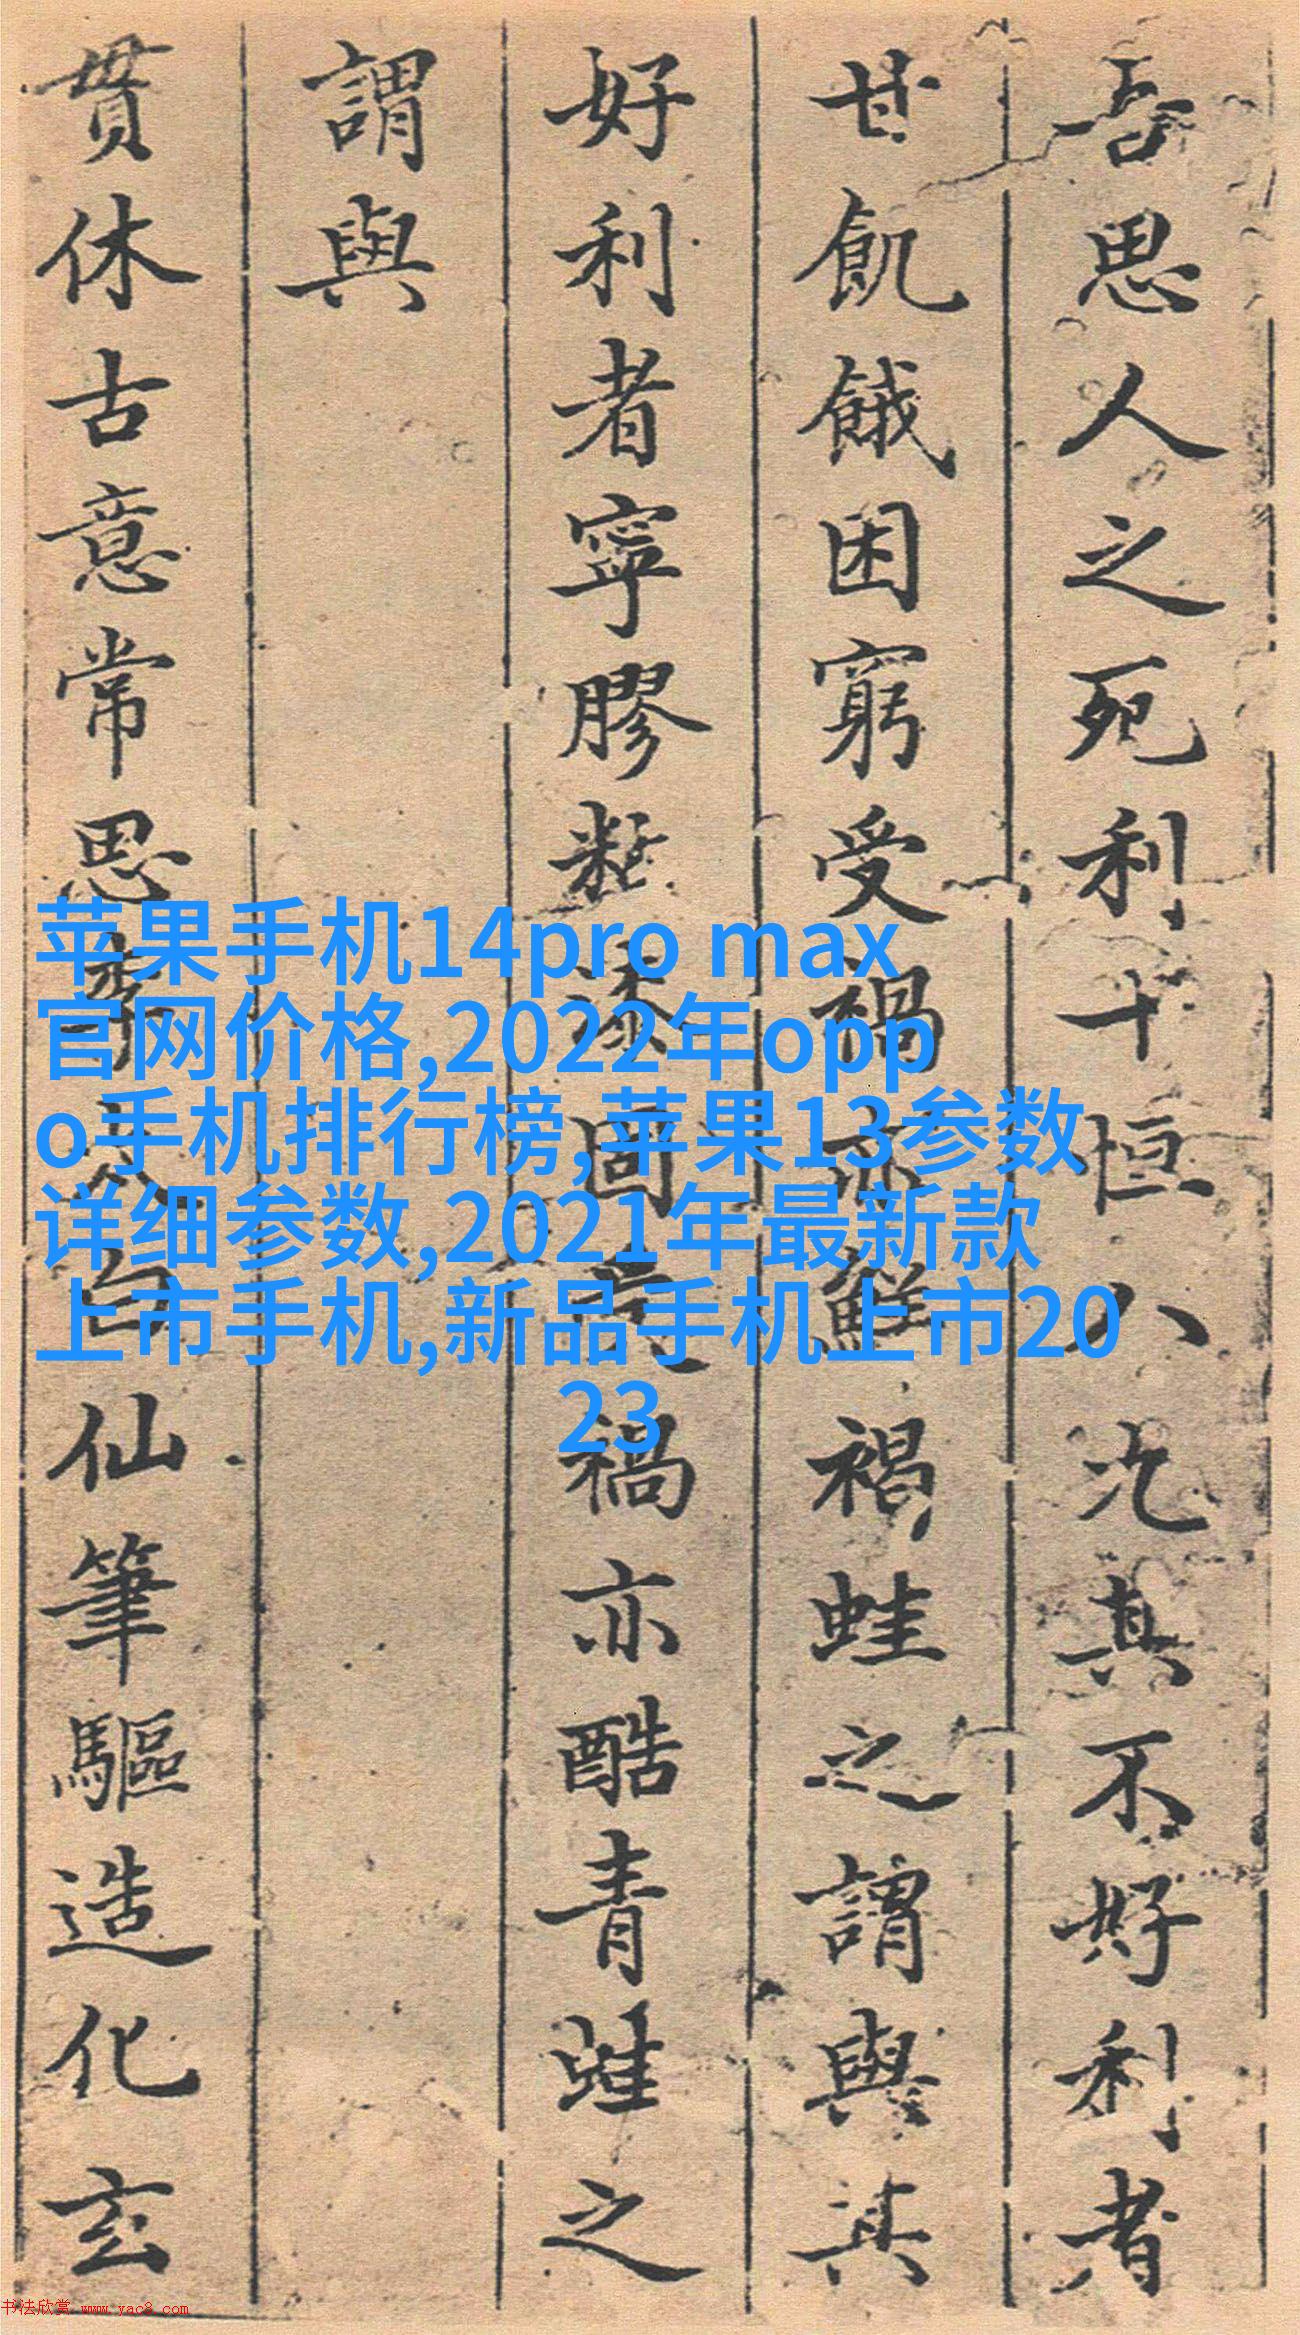 吾思人之死利十恒八九其不好利者
甘飢餓困窮受禍亦鮮禍蛙之謂與其
好利者寧膠粘漆固其禍亦酷青蛙之
謂與
贯休古意常思李太白仙筆驅造化玄
苹果手机14pro max
官网价格,2022年opp
o手机排行榜,苹果13参数
详细参数,2021年最新款
上市手机,新品手机上市20
23
书法欣赏 www.yac8.com